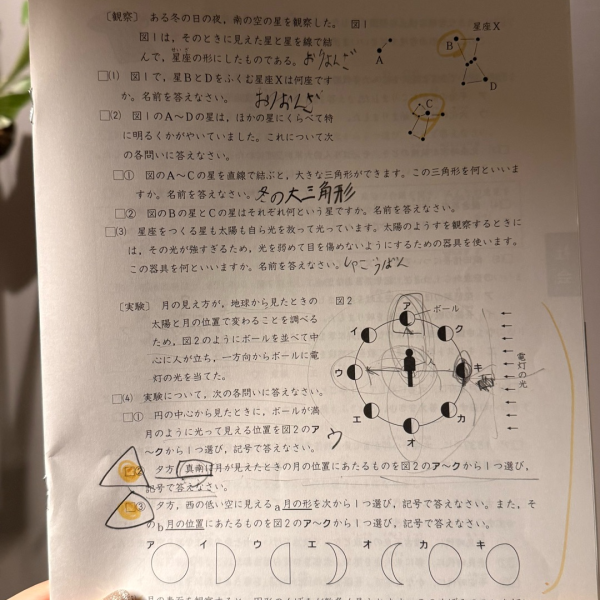 〔観察〕 ある冬の日の夜，南の空の星を観察した。 図1
星座X
図1は，そのときに見えた星と星を線で結
んで，星座の形にしたものである。おりおんざ
B
A
D
C
□(1) 図1で，星BとDをふくむ星座Xは何座です
か。名前を答えなさい。 おりおんざ
□(2) 図1のA～Dの星は，ほかの星にくらべて特
に明るくかがやいていました。これについて次
の各問いに答えなさい。
□① 図のA～Cの星を直線で結ぶと，大きな三角形ができます。この三角形を何といいま
すか。名前を答えなさい。冬の大三角形
□② 図のBの星とCの星はそれぞれ何という星ですか。名前を答えなさい。
□(3) 星座をつくる星も太陽も自ら光を放って光っています。太陽のようすを観察するときに
は，その光が強すぎるため，光を弱めて目を傷めないようにするための器具を使います。
この器具を何といいますか。名前を答えなさい。しゃこうばん
〔実験〕 月の見え方が，地球から見たときの
太陽と月の位置で変わることを調べる
ため，図2のようにボールを並べて中
心に人が立ち，一方向からボールに電
灯の光を当てた。
図2
ア
ボール
イ
ク
ウ
キ
エ
カ
オ
電灯の光
□(4) 実験について，次の各問いに答えなさい。
□① 円の中心から見たときに，ボールが満
月のように光って見える位置を図2のア
～クから1つ選び，記号で答えなさい。 ウ
□② 夕方，真南に月が見えたときの月の位置にあたるものを図2のア～クから1つ選び，
記号で答えなさい。
□③ 夕方，西の低い空に見えるa月の形を次から1つ選び，記号で答えなさい。また，そ
のb月の位置にあたるものを図2のア～クから1つ選び，記号で答えなさい。
ア イ ウ エ オ カ キ